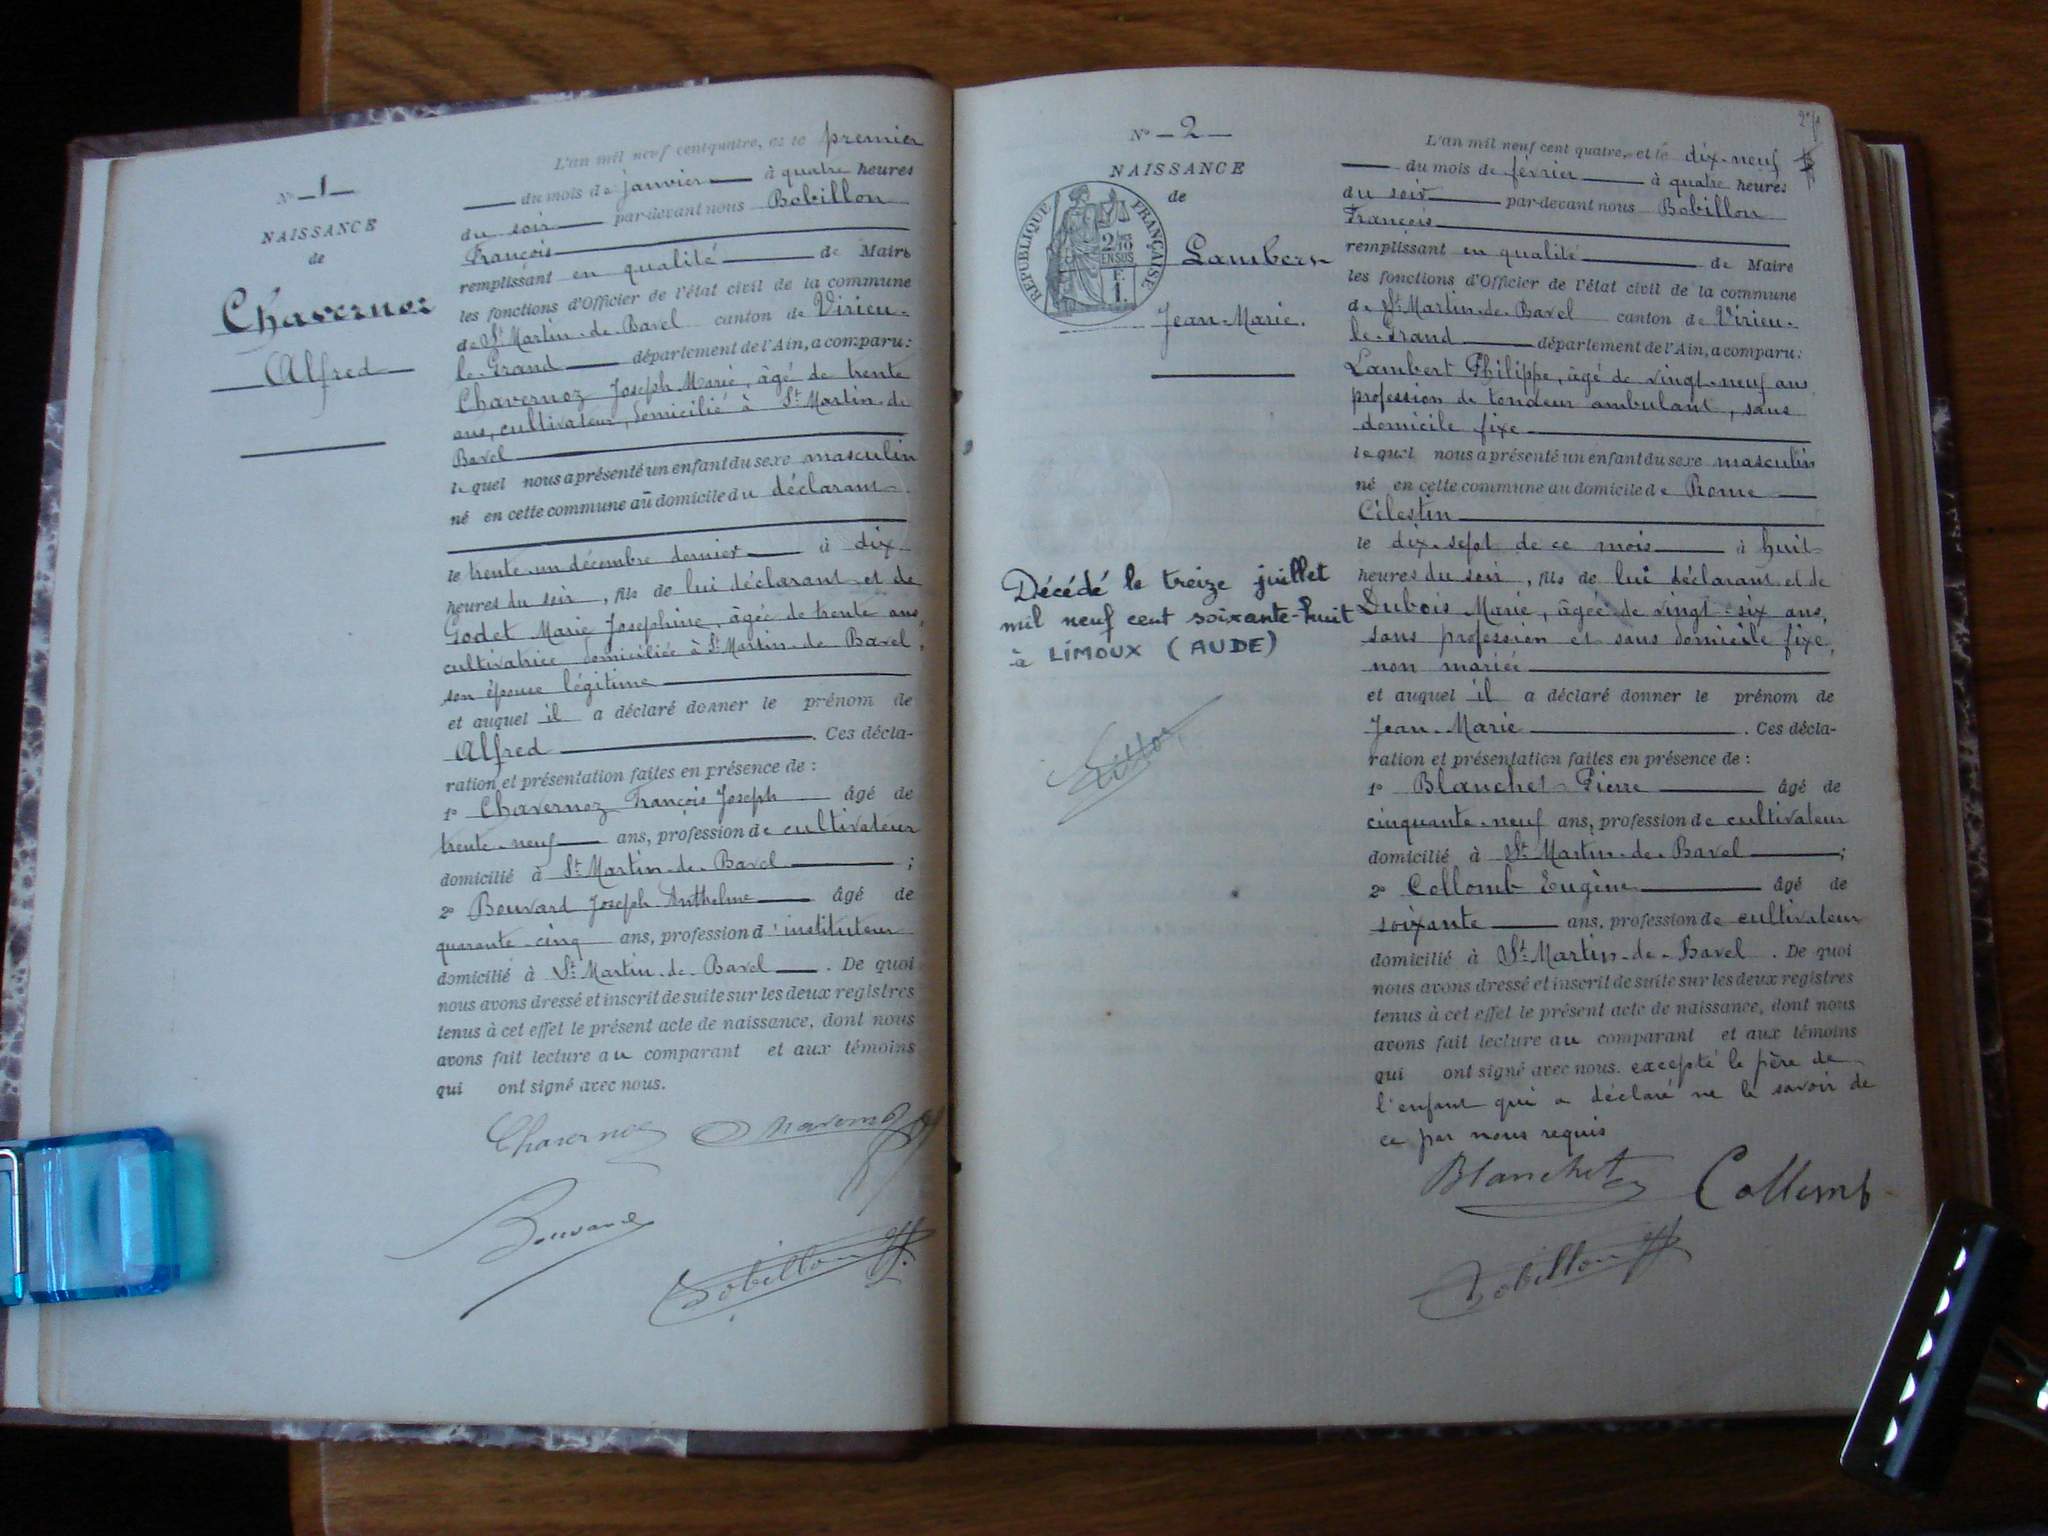 N° 1
NAISSANCE
de
Chavernoz
Alfred
L'an mil neuf cent quatre, et le premier
du mois de janvier à quatre heures
du soir par-devant nous Bobillon
François
remplissant en qualité de Maire
les fonctions d'Officier de l'état civil de la commune
de St Martin-de-Bavel canton de Virieu-
le-Grand département de l'Ain, a comparu:
Chavernoz Joseph Marie, âgé de trente
ans, cultivateur, domicilié à St Martin-de
Bavel
lequel nous a présenté un enfant du sexe masculin
né en cette commune au domicile du déclarant
le trente-un décembre dernier à dix
heures du soir, fils de lui déclarant et de
Godet Marie Josephine, âgée de trente ans,
cultivatrice domiciliée à St Martin-de-Bavel,
son épouse légitime
et auquel il a déclaré donner le prénom de
Alfred. Ces décla-
ration et présentation faites en présence de :
1° Chavernoz François Joseph âgé de
trente-neuf ans, profession de cultivateur
domicilié à St Martin-de-Bavel ;
2° Bouvard Joseph Anthelme âgé de
quarante-cinq ans, profession d'instituteur
domicilié à St Martin-de-Bavel. De quoi
nous avons dressé et inscrit de suite sur les deux registres
tenus à cet effet le présent acte de naissance, dont nous
avons fait lecture au comparant et aux témoins
qui ont signé avec nous.
Chavernoz
Bouvard
Bobillon
N° 2
NAISSANCE
de
RÉPUBLIQUE FRANÇAISE
2/10 EN SUS
F.
1.
Lambert
Jean-Marie.
Décédé le treize juillet
mil neuf cent soixante-huit
à LIMOUX (AUDE)
L'an mil neuf cent quatre, et le dix-neuf
du mois de février à quatre heures
du soir par-devant nous Bobillon
François
remplissant en qualité de Maire
les fonctions d'Officier de l'état civil de la commune
de St Martin-de-Bavel canton de Virieu-
le-Grand département de l'Ain, a comparu:
Lambert Philippe, âgé de vingt-neuf ans
profession de tondeur ambulant, sans
domicile fixe
lequel nous a présenté un enfant du sexe masculin
né en cette commune au domicile de Prome
Célestin
le dix-sept de ce mois à huit
heures du soir, fils de lui déclarant et de
Dubois Marie, âgée de vingt-six ans,
sans profession et sans domicile fixe,
non mariée
et auquel il a déclaré donner le prénom de
Jean-Marie. Ces décla-
ration et présentation faites en présence de :
1° Blanchet Pierre âgé de
cinquante-neuf ans, profession de cultivateur
domicilié à St Martin-de-Bavel ;
2° Collomb Eugène âgé de
soixante ans, profession de cultivateur
domicilié à St Martin-de-Bavel. De quoi
nous avons dressé et inscrit de suite sur les deux registres
tenus à cet effet le présent acte de naissance, dont nous
avons fait lecture au comparant et aux témoins
qui ont signé avec nous. excepté le père de
l'enfant qui a déclaré ne le savoir de
ce par nous requis
Blanchet Collomb
Bobillon